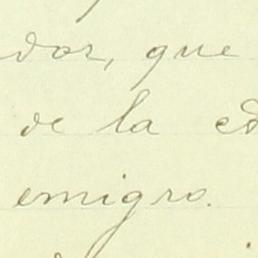 dor, que
de la
emigro.